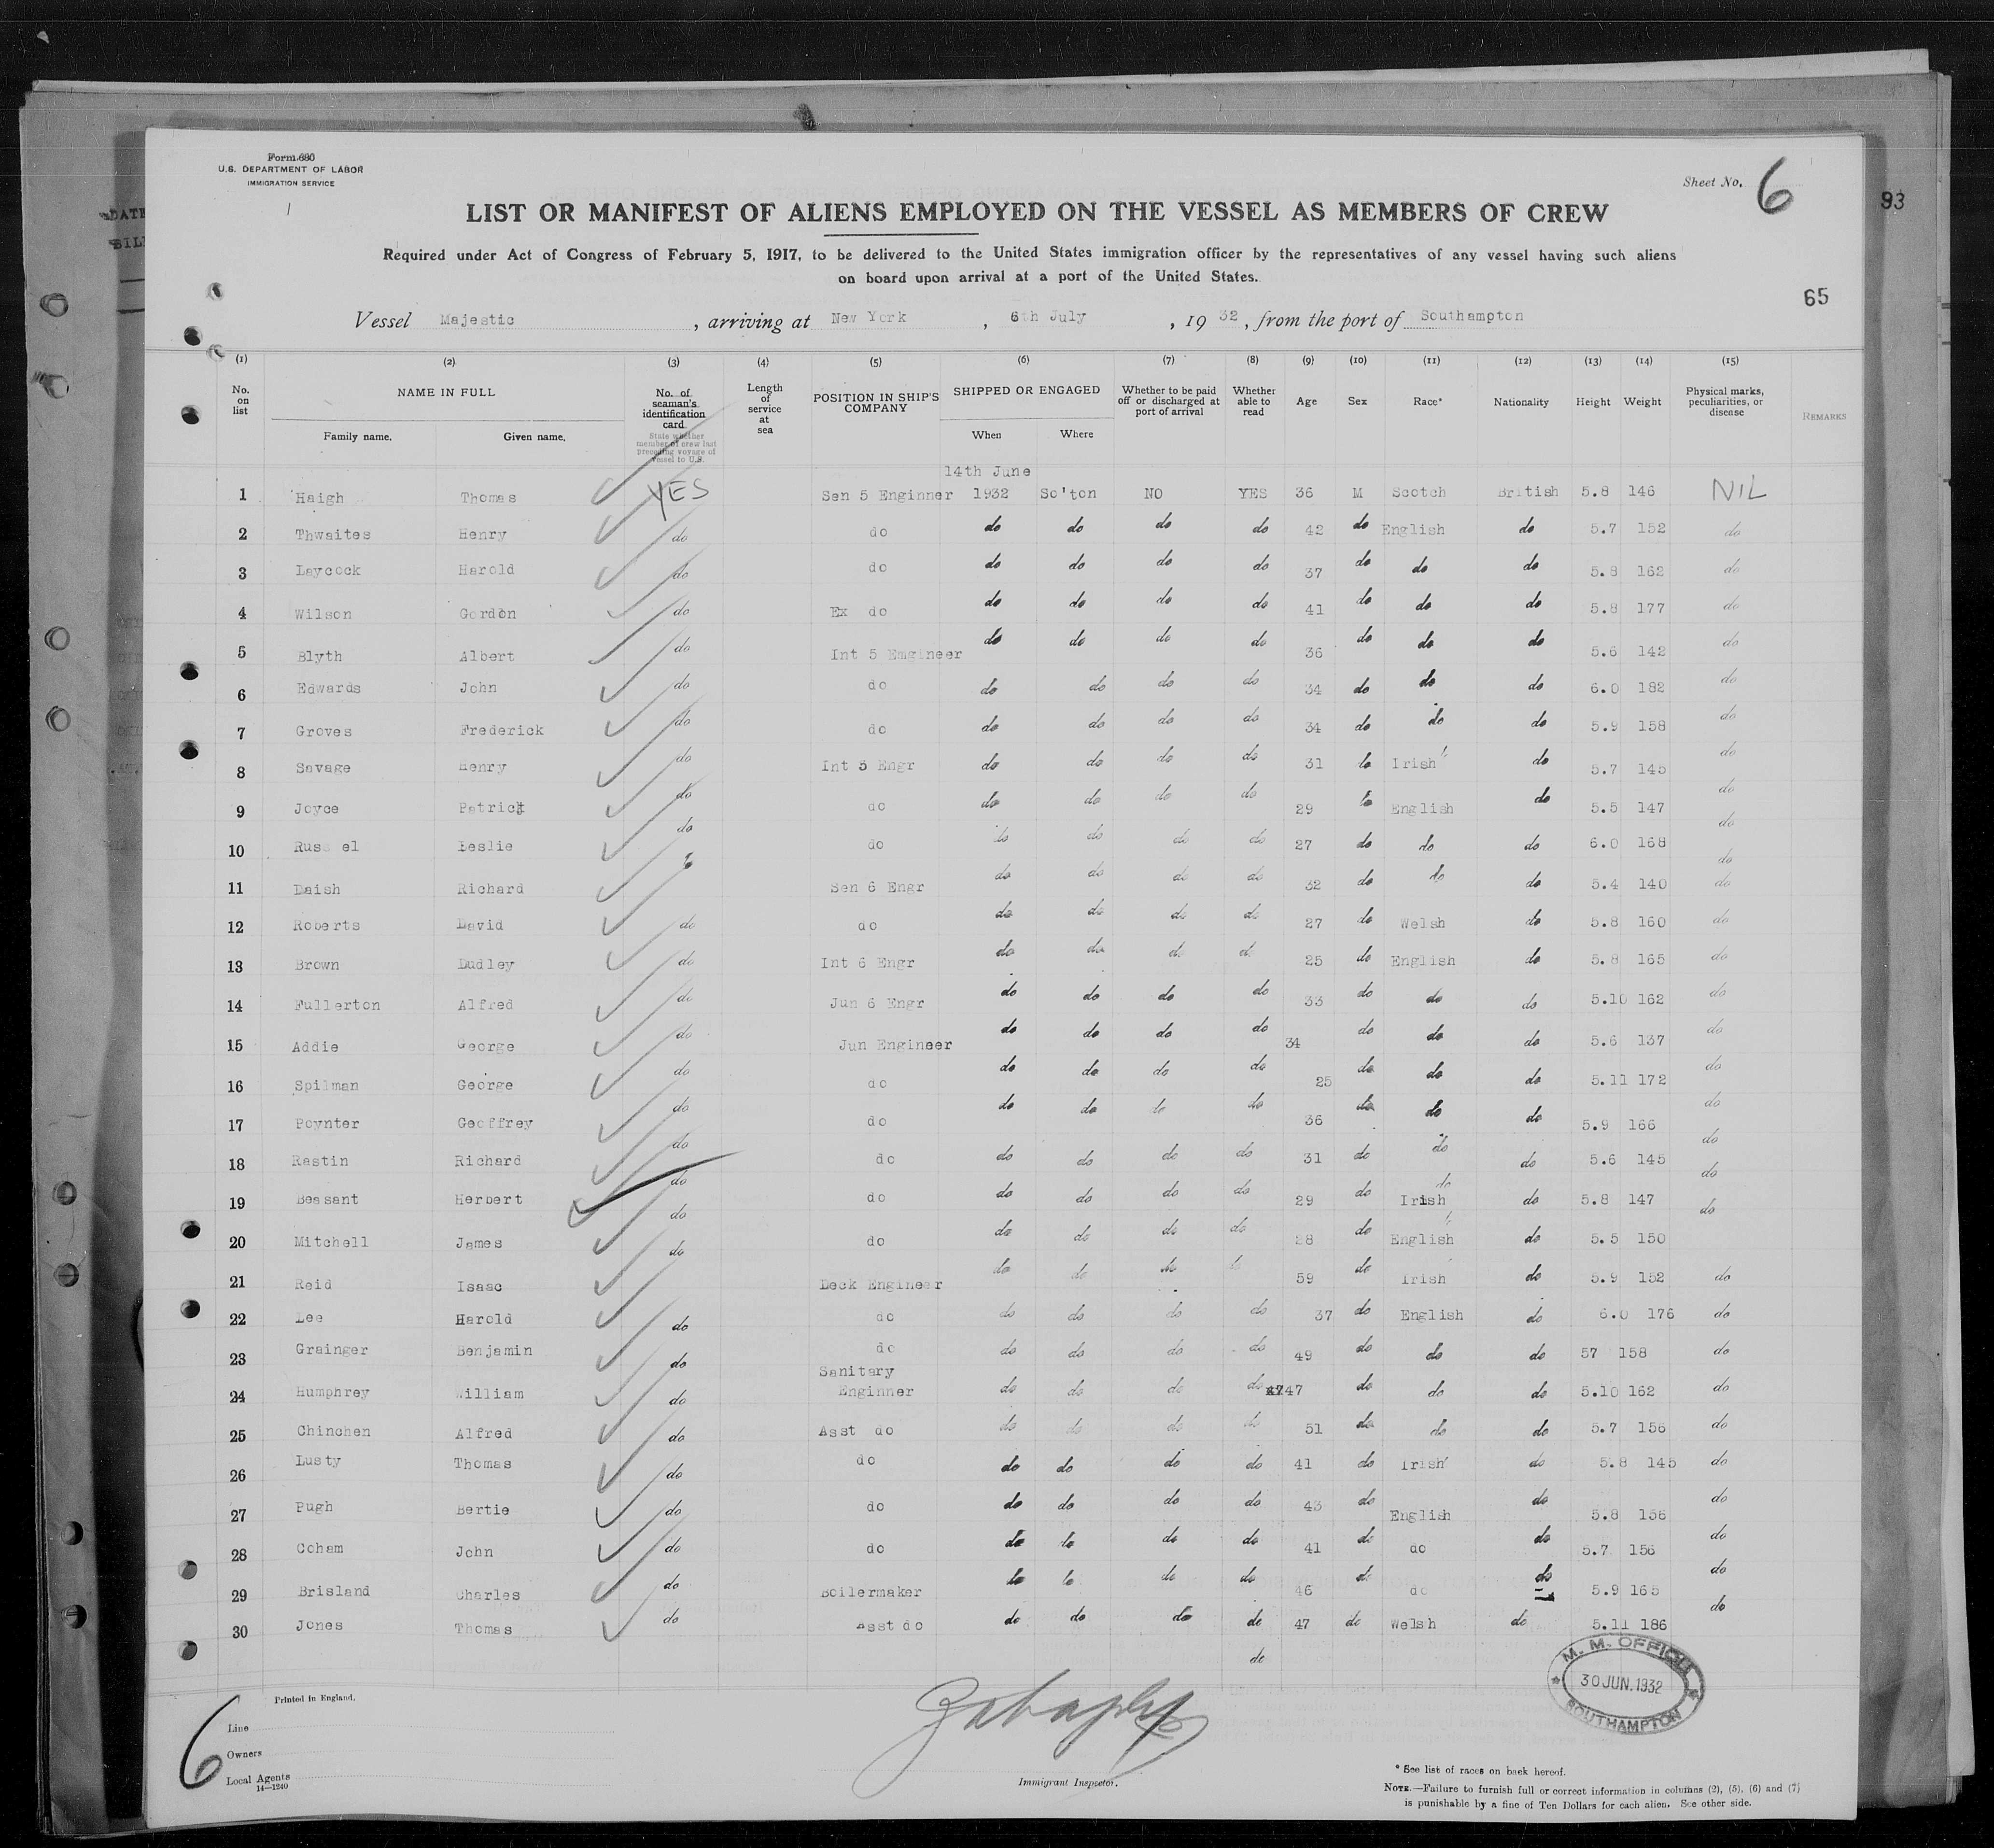 Form 680
U.S. DEPARTMENT OF LABOR
IMMIGRATION SERVICE
Sheet No. 6
93
LIST OR MANIFEST OF ALIENS EMPLOYED ON THE VESSEL AS MEMBERS OF CREW
Required under Act of Congress of February 5, 1917, to be delivered to the United States immigration officer by the representatives of any vessel having such aliens
on board upon arrival at a port of the United States.
65
Vessel Majestic , arriving at New York , 6th July , 19 32 , from the port of Southampton
(1) (2) (3) (4) (5) (6) (7) (8) (9) (10) (11) (12) (13) (14) (15)
No. on list NAME IN FULL Family name. Given name. No. of seaman's identification card. State whether member of crew last preceding voyage of vessel to U.S. Length of service at sea POSITION IN SHIP'S COMPANY SHIPPED OR ENGAGED When Where Whether to be paid off or discharged at port of arrival Whether able to read Age Sex Race* Nationality Height Weight Physical marks, peculiarities, or disease REMARKS
14th June
1 Haigh Thomas YES Sen 5 Enginner 1932 So'ton NO YES 36 M Scotch British 5.8 146 NIL
2 Thwaites Henry do do do do do do 42 do English do 5.7 152 do
3 Laycock Harold do do do do do do 37 do do do 5.8 162 do
4 Wilson Gordon do Ex do do do do do 41 do do do 5.8 177 do
5 Blyth Albert do Int 5 Emgineer do do do do 36 do do do 5.6 142 do
6 Edwards John do do do do do do 34 do do do 6.0 182 do
7 Groves Frederick do do do do do do 34 do do do 5.9 158 do
8 Savage Henry do Int 5 Engr do do do do 31 do Irish do 5.7 145 do
9 Joyce Patrick do do do do do do 29 do English do 5.5 147 do
10 Rus el Leslie do do do do do do 27 do do do 6.0 168 do
11 Daish Richard Sen 6 Engr do do do do 32 do do do 5.4 140 do
12 Roberts David do do do do do do 27 do Welsh do 5.8 160 do
13 Brown Dudley do Int 6 Engr do do do do 25 do English do 5.8 165 do
14 Fullerton Alfred do Jun 6 Engr do do do do 33 do do do 5.10 162 do
15 Addie George do Jun Engineer do do do do 34 do do do 5.6 137 do
16 Spilman George do do do do do do 25 do do do 5.11 172 do
17 Poynter Geoffrey do do do do do do 36 do do do 5.9 166 do
18 Rastin Richard do do do do do do 31 do do do 5.6 145 do
19 Beasant Herbert do do do do do do 29 do Irish do 5.8 147 do
20 Mitchell James do do do do do do 28 do English do 5.5 150
21 Reid Isaac do Deck Engineer do do do do 59 do Irish do 5.9 152 do
22 Lee Harold do do do do do do 37 do English do 6.0 176 do
23 Grainger Benjamin do do do do do do 49 do do do 57 158 do
Sanitary
24 Humphrey William do Enginner do do do do 47 do do do 5.10 162 do
25 Chinchen Alfred do Asst do do do do do 51 do do do 5.7 156 do
26 Lusty Thomas do do do do do do 41 do Irish do 5.8 145 do
27 Pugh Bertie do do do do do do 43 do English do 5.8 156 do
28 Coham John do do do do do do 41 do do do 5.7 156 do
29 Brisland Charles do Boilermaker do do do do 46 do do do 5.9 165 do
30 Jones Thomas do Asst do do do do do 47 do Welsh do 5.11 186 do
do
M. M. OFFICE
30 JUN. 1932
SOUTHAMPTON
Printed in England.
6
Line
Owners
Local Agents
14—1240
Immigrant Inspector.
* See list of races on back hereof.
NOTE.—Failure to furnish full or correct information in columns (2), (5), (6) and (7)
is punishable by a fine of Ten Dollars for each alien. See other side.